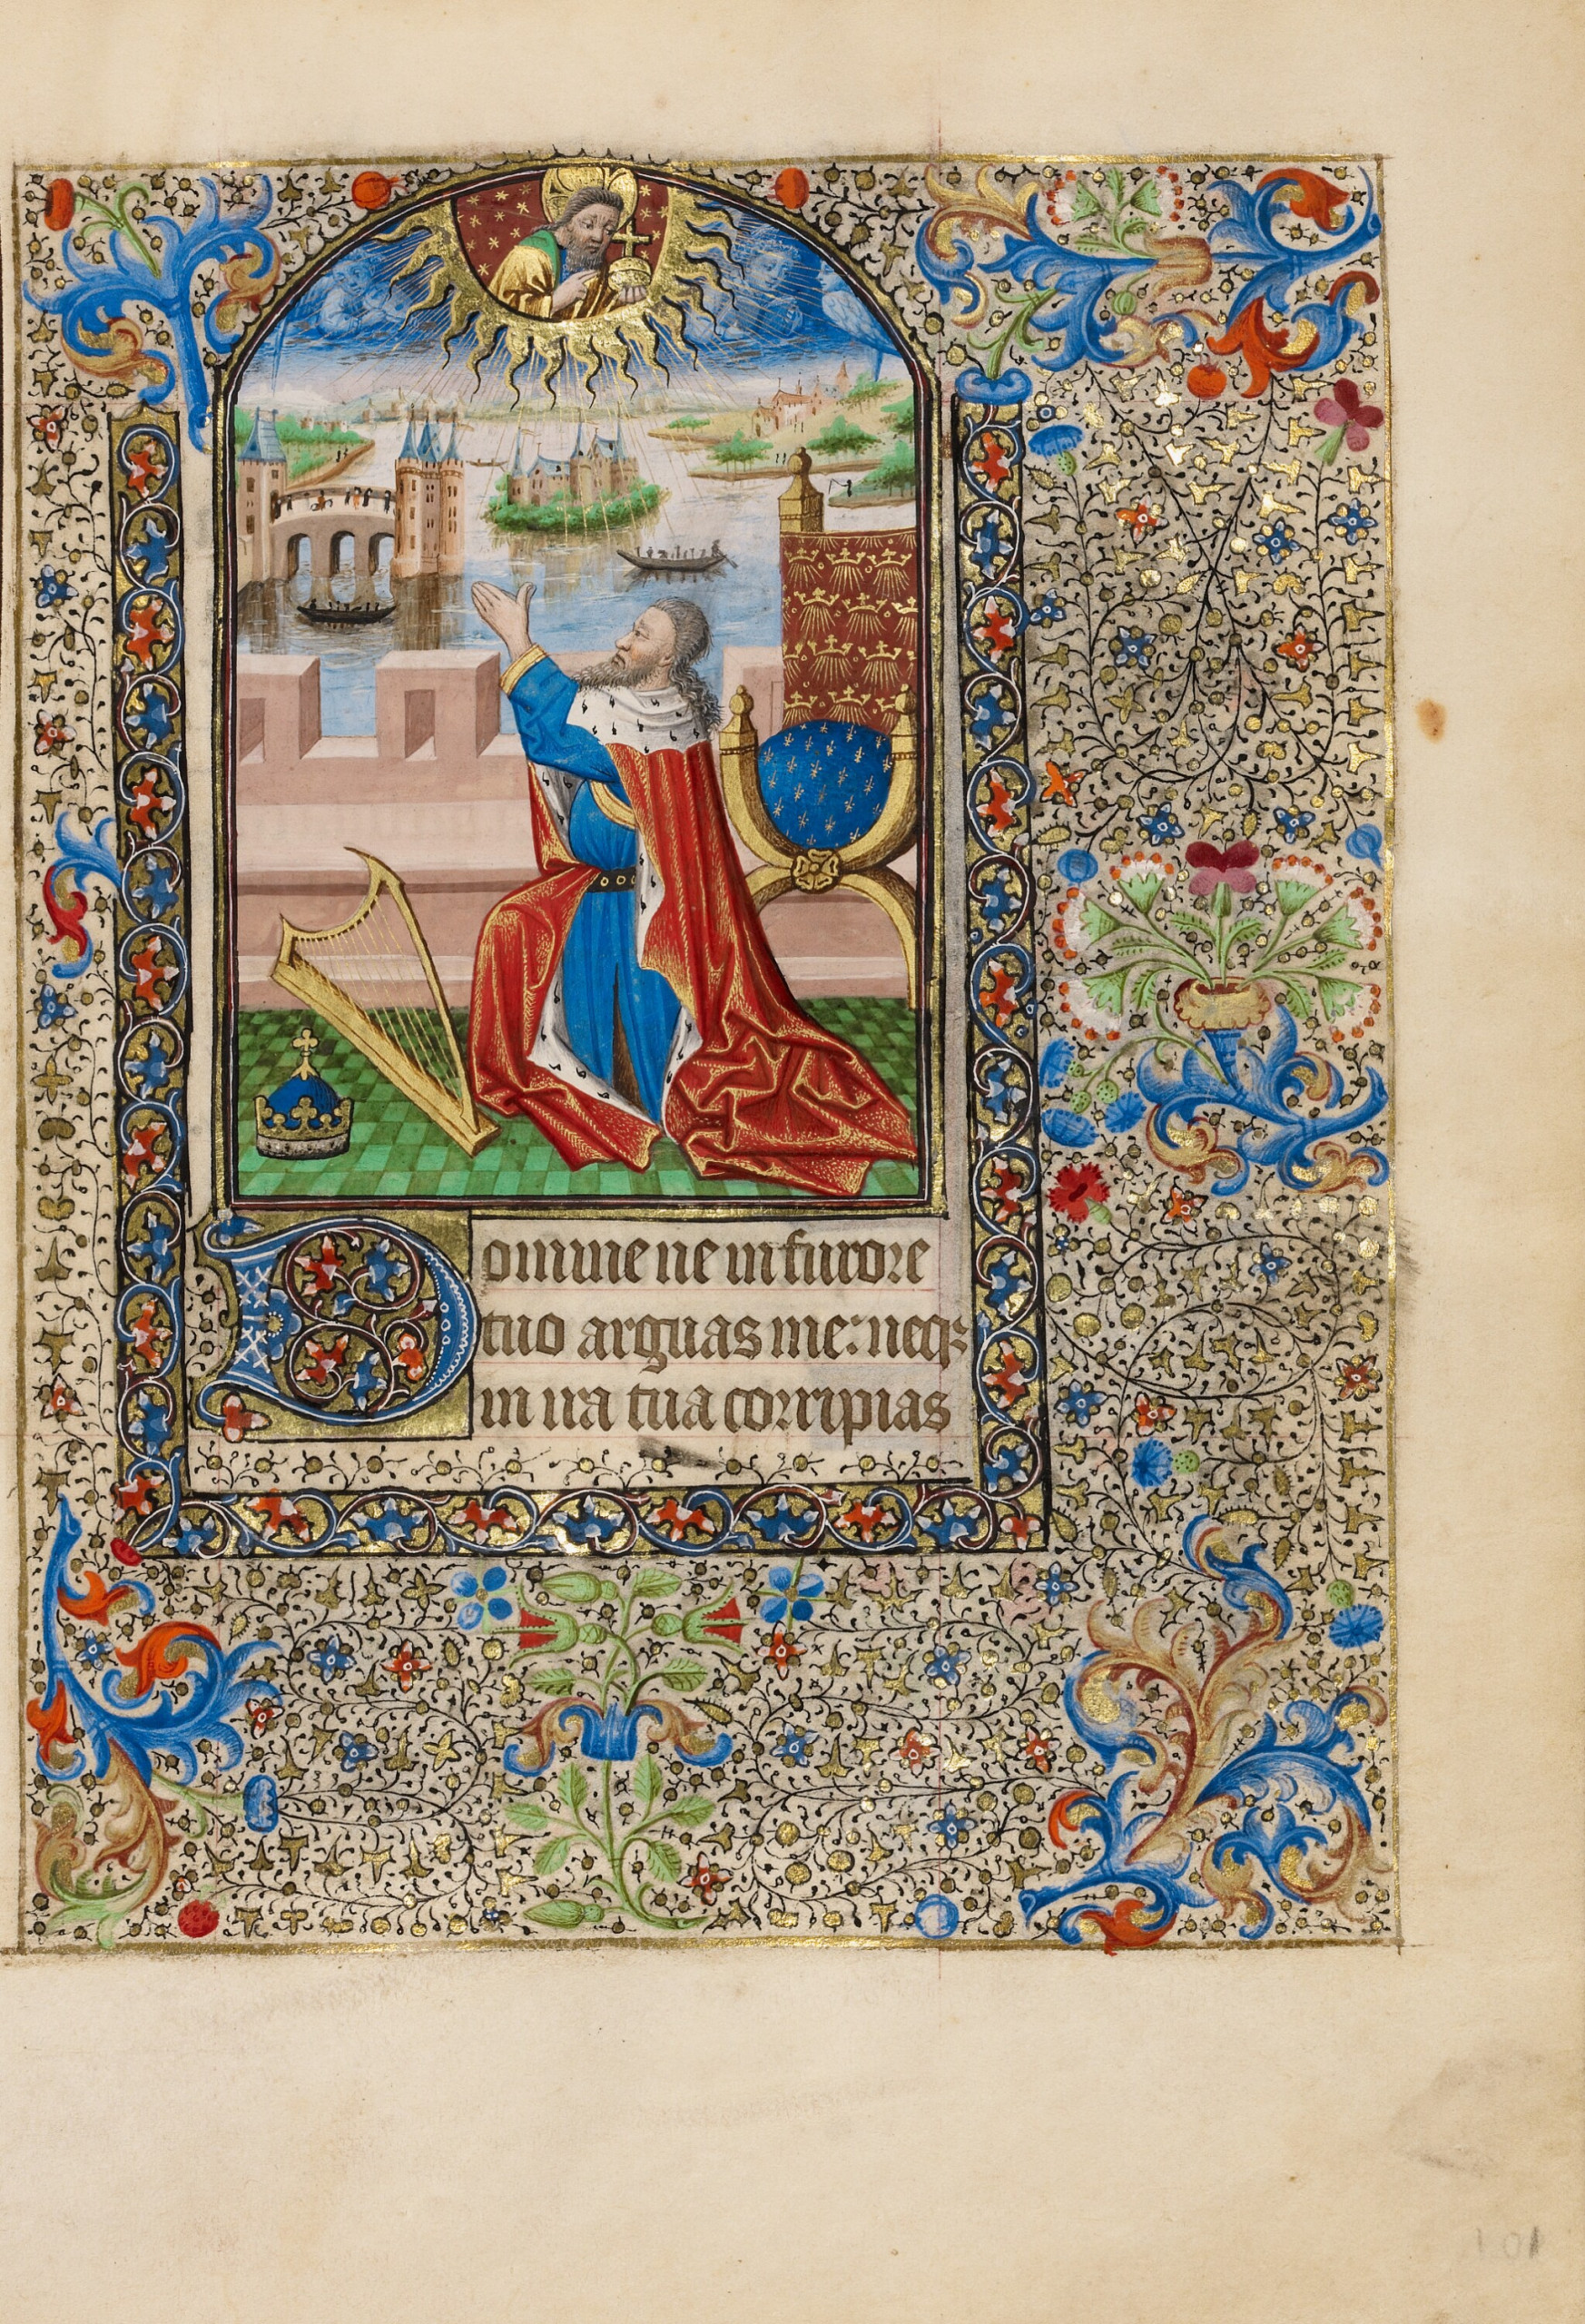 Domine ne in furore
tuo arguas me: neqꝫ
in ira tua corripias
101